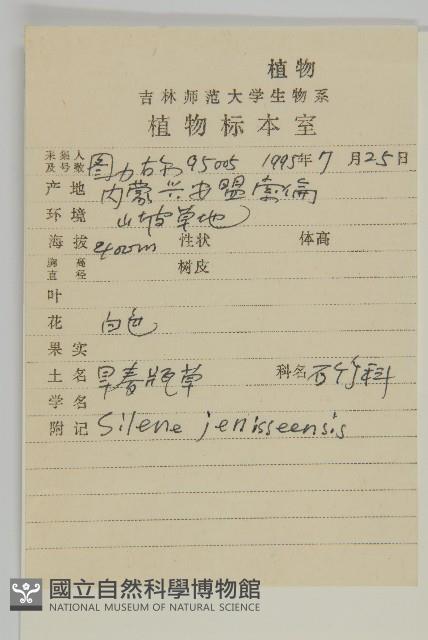 植物
吉林师范大学生物系
植物标本室
采集人及号数 图力古尔 95005 1995年7月25日
产地 内蒙兴安盟索伦
环境 山坡草地
海拔 400m 性状 体高
胸高直径 树皮
叶
花 白色
果实
土名 旱麦瓶草 科名 石竹科
学名
附记 Silene jenisseensis
國立自然科學博物館
NATIONAL MUSEUM OF NATURAL SCIENCE